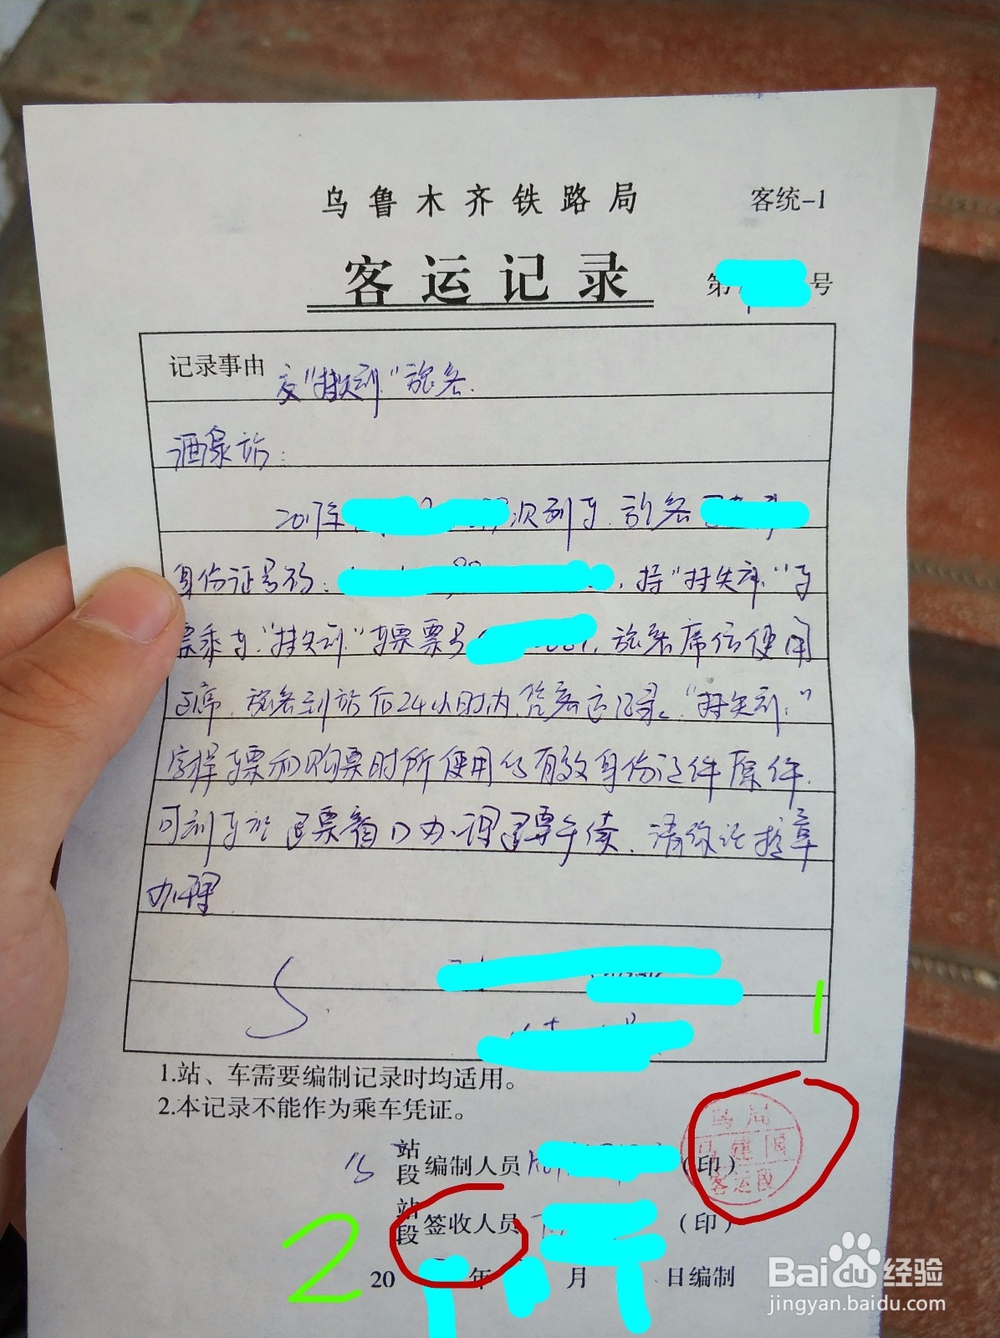 乌鲁木齐铁路局 客统-1
客运记录 第 号
记录事由 交“挂失补”旅客.
酒泉站:
2017年 次列车,旅客
身份证号码: ,持“挂失补”车
票乘车.“挂失补”车票票号 ,旅客席位使用
正常.旅客到站后24小时内,凭客运记录.“挂失补”
字样车票和购票时所使用的有效身份证件原件.
可到车站退票窗口办理退票手续.请你站按章
办理
1.站、车需要编制记录时均适用。
2.本记录不能作为乘车凭证。
站段 编制人员 (印)
站段 签收人员 (印)
20 年 月 日编制
乌局
马建国
客运段
1
2
Baidu经验
jingyan.baidu.com